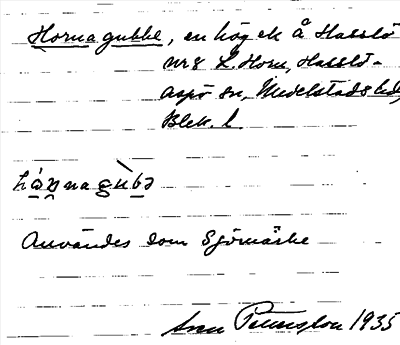 Hornagubbe, en hög ek å Hasslö
nr 8 L. Horn, Hasslö-
aspö sn, Medelstads hd,
Blek. l.
Användes som Sjömärke
Sven 1935